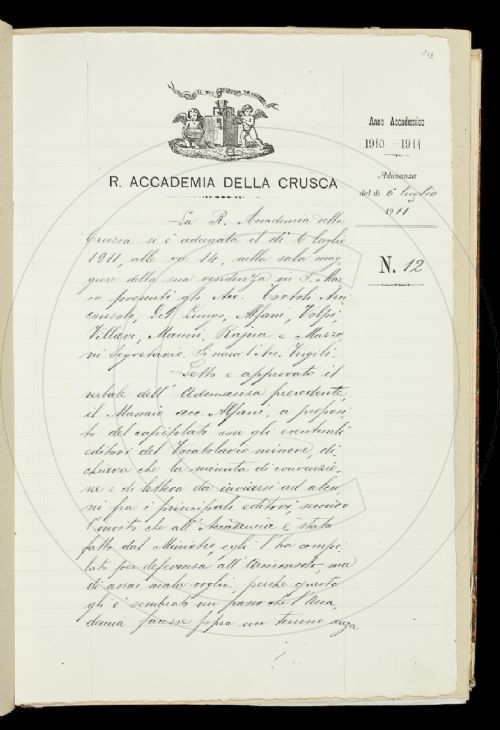 213
IL PIÙ BEL FIOR NE COGLIE
R. ACCADEMIA DELLA CRUSCA
Anno Accademico
1910 - 1911
Adunanza
del dì 6 luglio
1911
N. 12
La R. Accademia della
Crusca si è adunata il dì 6 luglio
1911, alle ore 14, nella sala mag
giore della sua residenza in S. Mar
co presenti gli Acc. Tortoli Arci
consolo, Del Lungo, Alfani, Volpi
Villari, Mancini, Rajna e Mazzo
ni Segretario. Si scusa l'Acc. Vigili.
Letto e approvato il
verbale dell' Adunanza precedente,
il Massaio acc. Alfani, a proposi
to del capitolato con gli eventuali
editori del Vocabolario minore, di
chiara che la minuta di convenzio
ne e di lettera da inviarsi ad alcu
ni fra i principali editori, secondo
l'invito che all' Accademia è stato
fatto dal Ministro, egli l'ha compi
lato per deferenza all' Arciconsolo, ma
di assai mala voglia, perché questo
gli è sembrato un passo che l'Acca
demia facesse sopra un terreno